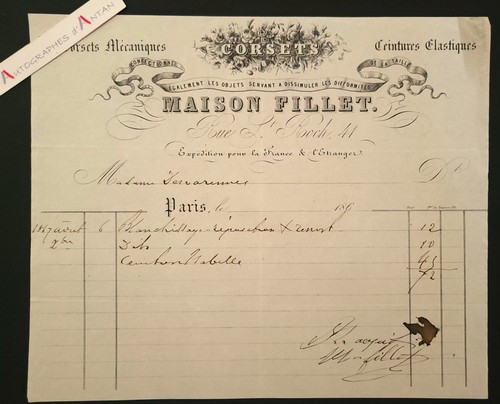 AUTOGRAPHES d'ANTAN
Corsets Mécaniques
CORSETS
Ceintures Elastiques
CONFECTIONNÉS
ÉGALEMENT LES OBJETS SERVANT A DISSIMULER LES DIFFORMITÉS
DE LA TAILLE
MAISON FILLET.
Rue St. Roch, 41
Expédition pour la France & l'Etranger
Madame
Dt
Paris, le 186
1867 août 6 Blanchissage réparation & 12
10
Ceinture 45
72
Pr acquit
Fillet